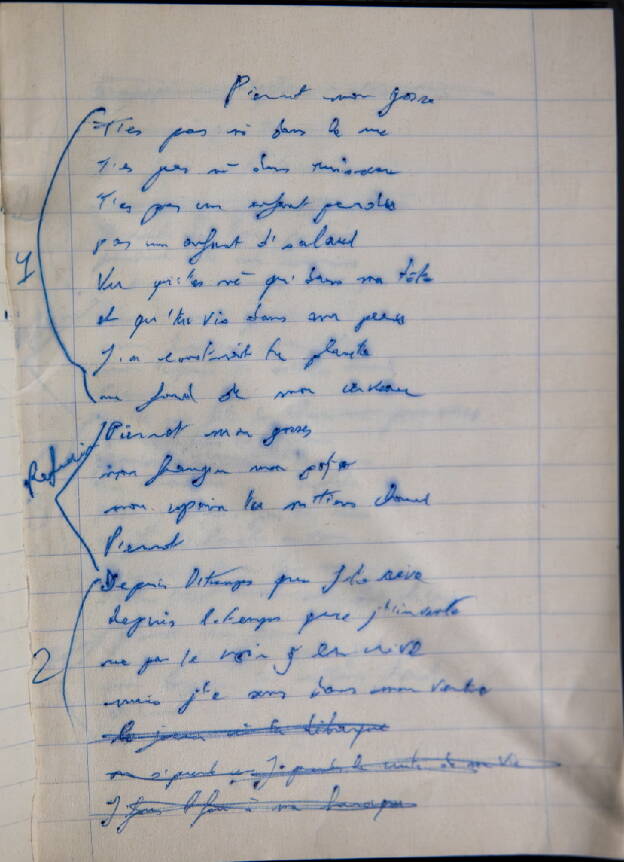 Pierrot mon gosse
1
T'es pas né dans la rue
T'es pas né dans l'ruisseau
T'es pas un enfant perdu
pas un enfant d'salaud
Vu qu't'es né qu'dans ma tête
et qu'tu vis dans ma peau
J'ai construit ta planète
au fond de mon cerveau
Refrain
Pierrot mon gosse
mon frangin mon poto
mon copain tu m'tiens chaud
Pierrot
2
Depuis l'temps que j'te rêve
depuis l'temps que j't'invente
ne pas te voir j'en crève
mais j'te sens dans mon ventre
le jour où tu débarques
de ma vie
J'fous l'feu à ma baraque